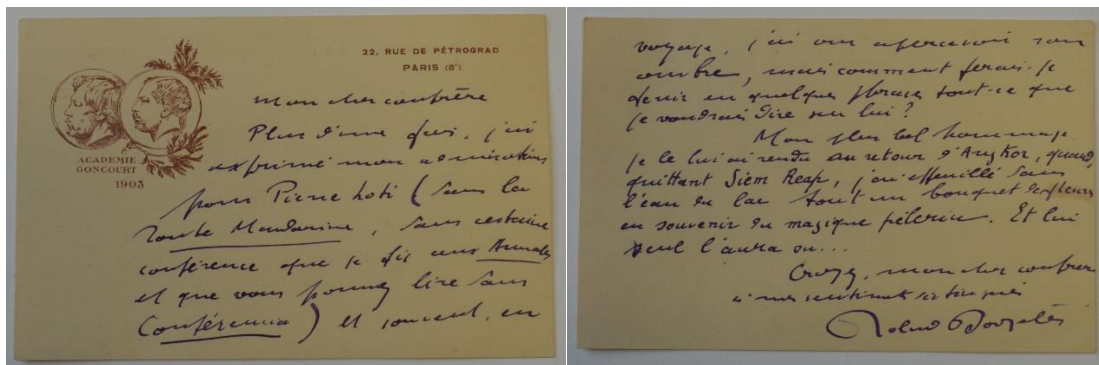 22. RUE DE PÉTROGRAD
PARIS (8e)
ACADEMIE
GONCOURT
1903
Mon cher confrère
Plus d'une fois, j'ai
exprimé mon admiration
pour Pierre Loti (dans la
Route Mandarine, dans certaine
conférence que je fis aux Annales
et que vous pouvez lire dans
Conférencia) et souvent, en
voyage, j'ai cru apercevoir son
ombre, mais comment ferais-je
tenir en quelques phrases tout ce que
je voudrais dire sur lui?
Mon plus bel hommage
je le lui ai rendu au retour d'Angkor, quand,
quittant Siem Reap, j'ai effeuillé dans
l'eau du lac tout un bouquet de fleurs
en souvenir du magique pélerin. Et lui
seul l'aura su...
Croyez, mon cher confrère
à mes sentiments distingués
Roland Dorgelès